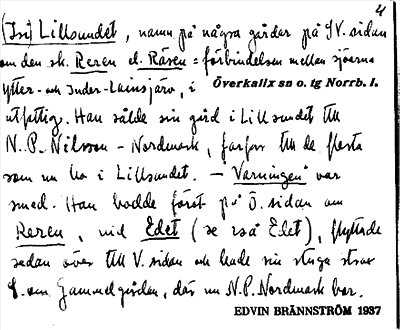 4
(I si) Lillsundet, namn på några gårdar på SV. sidan
om den sk. Reren el. Rären = förbindelsen mellan sjöarna
Ytter- och Inder-Lainsjärv, i Överkalix sn o. tg Norrb. l.
utfattig. Han sålde sin gård i Lillsundet till
N.P. Nilsson - Nordmark, farfar till de flesta
som nu bo i Lillsundet. - "Varningen" var
smed. Han bodde först på Ö. sidan om
Reren, vid Edet (se också Edet), flyttade
sedan över till V. sidan och hade sin stuga strax
S. om Gammelgården, där nu N.P. Nordmark bor.
EDVIN BRÄNNSTRÖM 1937